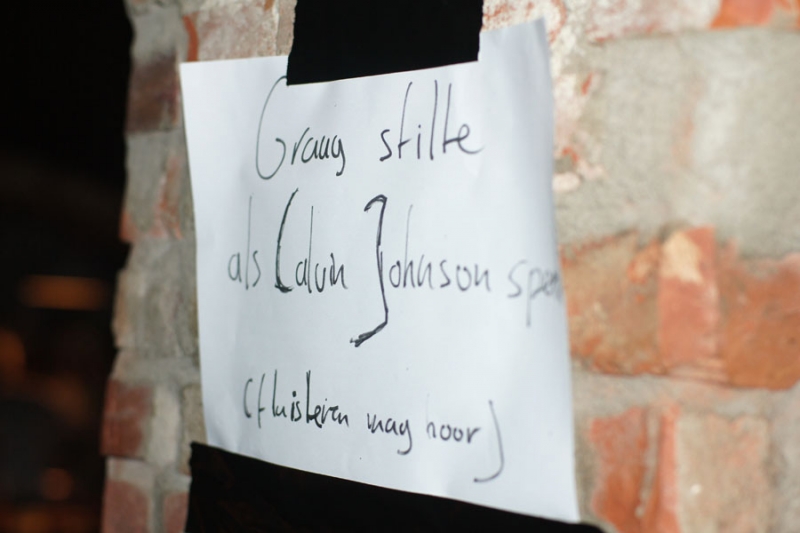 Graag stilte
als Calvin Johnson spee
(fluisteren mag hoor)